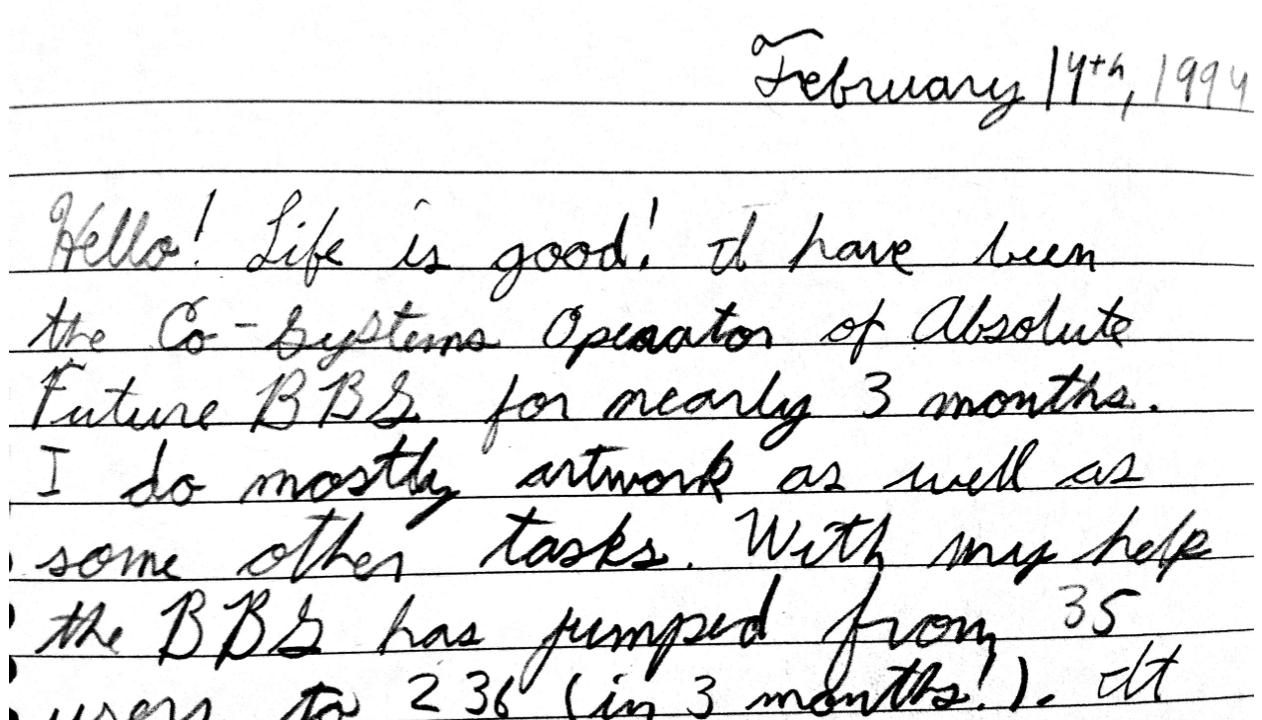 February 14th, 1994
Hello! Life is good! I have been
the Co-Systems Operator of Absolute
Future BBS for nearly 3 months.
I do mostly artwork as well as
some other tasks. With my help
the BBS has jumped from 35
users to 236 (in 3 months!). It